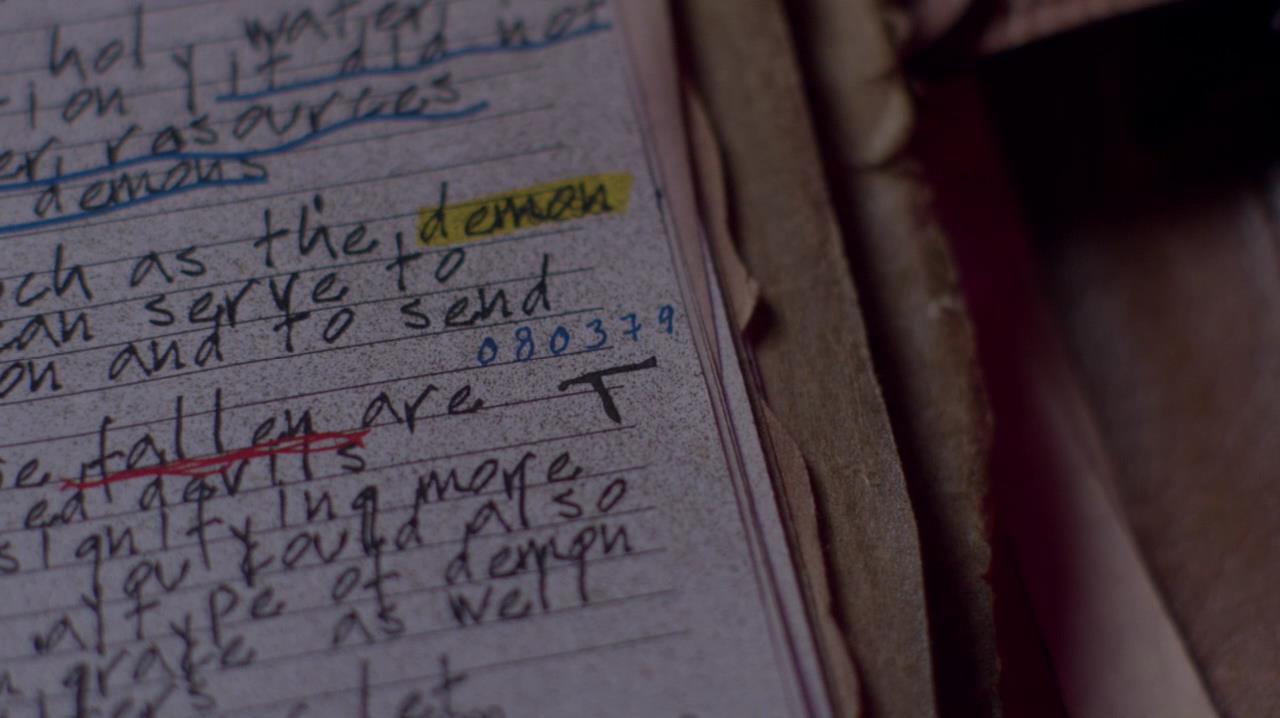 hol water
ion y it did not
er, rasources
demons
ch as the, demon
can serve to
on and to send
080379
fallen are T
ed devils
signifying more
could also
type of demon
grace as well
let